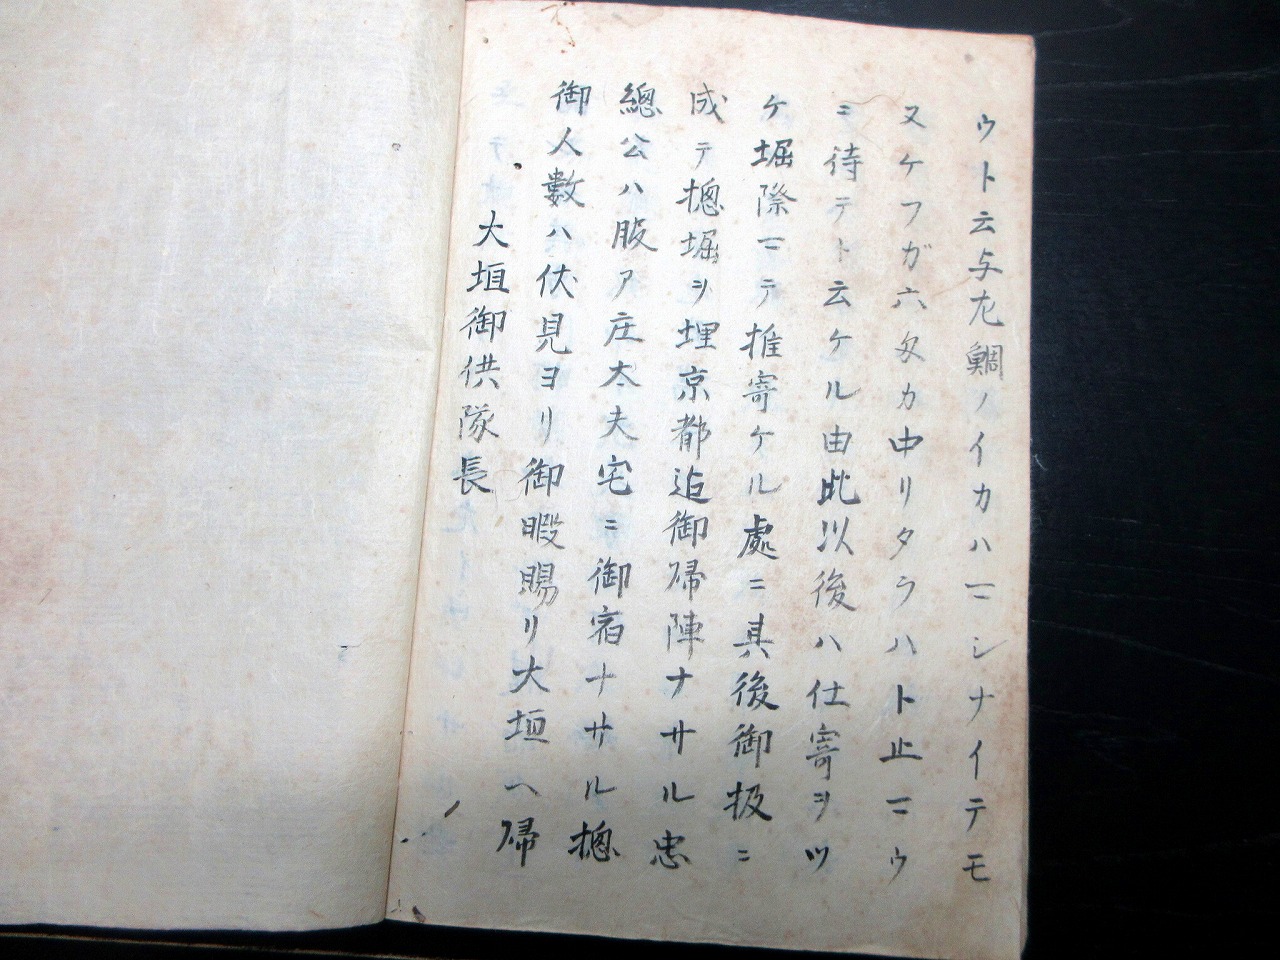 ウト云与尤鯛ノイカハニシナイテモ
又ケフガ六匁カ中リタラハト止ニウ
ニ待テト云ケル由此以後ハ仕寄ヲツ
ケ堀際ニテ推寄ケル處ニ其後御扱ニ
成テ摠堀ヲ埋京都迠御帰陣ナサル忠
總公ハ腹ア庄太夫宅ニ御宿ナサル摠
御人數ハ伏見ヨリ御暇賜リ大垣ヘ帰
大垣御供隊長